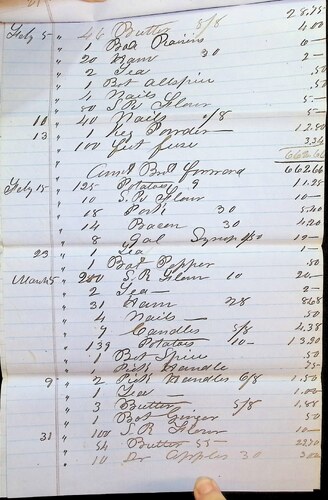 Feby 5 " 46 Butter 5/8 28.75
" 1 Box Raisins 4.00
" 20 Ham 30 6—
" 2 Tea 2—
" 1 Bot allspice .50
" 4 Nails .50
" 50 S.R. Flour 5—
10 " 40 Nails 1/8 5—
13 " 1 Keg Powder 12.50
" 100 feet fuse
662.66
Amt Brot forward 662.66
Feby 15 " 125 Potatoes 9 11.25
" 10 S.R. Flour
" 18 Pork 30 5.40
" 14 Bacon 30 4.20
" 8 Gal Syrup
23 " 1 Tea 1—
" 1 Bot Pepper .50
March 5 " 200 S.R. Flour 10 20—
" 2 Tea — 2—
" 31 Ham 28 8.68
" 4 Nails — .50
" 7 Candles 5/8 4.38
" 139 Potatoes 10— 13.90
" 1 Bot Spice .50
" 1 Pick Handle .75
9 " 2 Pick Handles 6/8 1.50
" 1 Tea — 1.00
" 3 Butter 5/8 1.88
" 1 Bot Ginger .50
31 " 100 S.R. Flour 10—
" 54 Butter 55—
" 10 Dr Apples 30 3.00